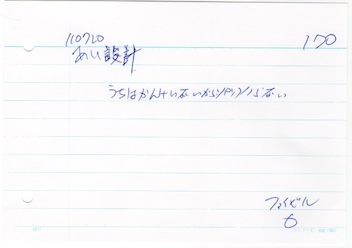 110720
170
あい設計
うちはかんけいないからやりとりはない
ファイビル
6